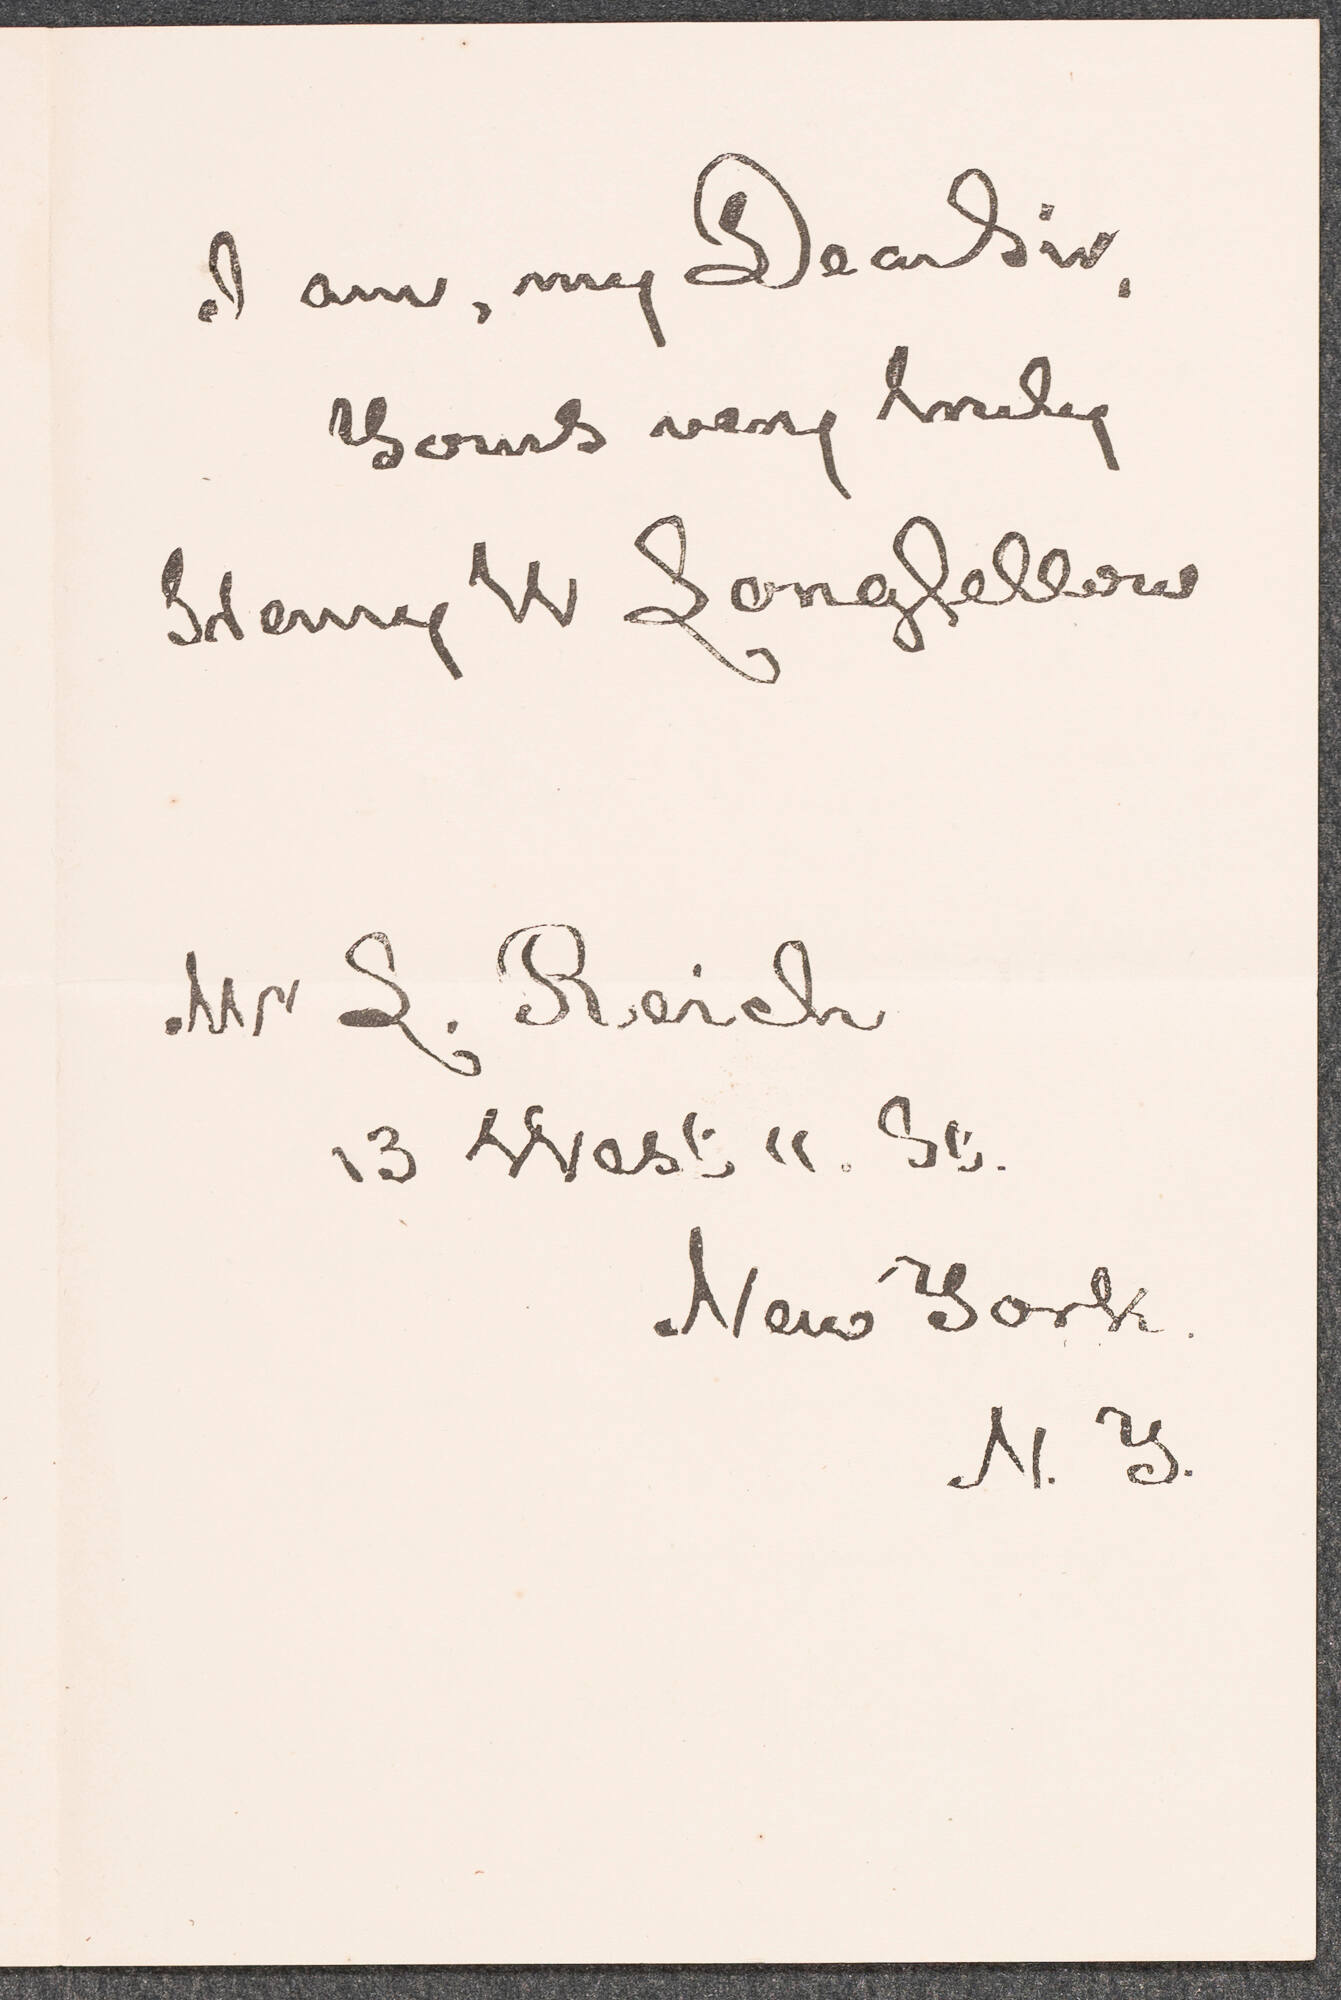 I am, my Dear Sir,
Yours very truly
Henry W Longfellow
Mr L. Reich
13 West 11. St.
New York.
N. Y.